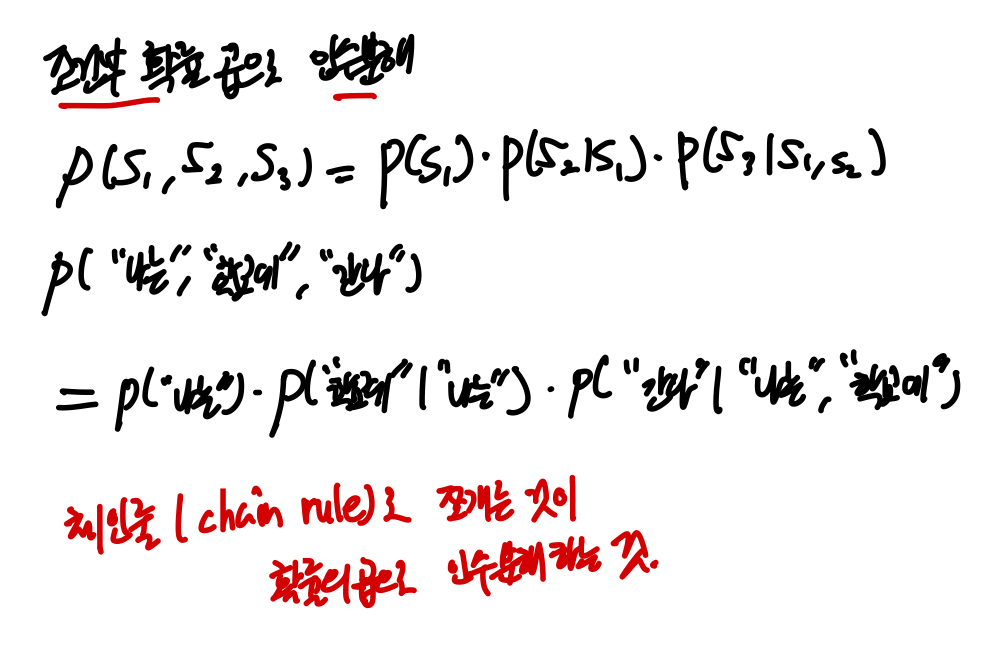 조건부 확률 곱으로 인수분해
p(S₁,S₂,S₃) = p(S₁)·p(S₂|S₁)·p(S₃|S₁,S₂)
p("나는","학교에","간다")
= p("나는")·p("학교에"|"나는")·p("간다"|"나는","학교에")
체인룰 (chain rule)로 쪼개는 것이
확률의 곱으로 인수분해 하는 것.